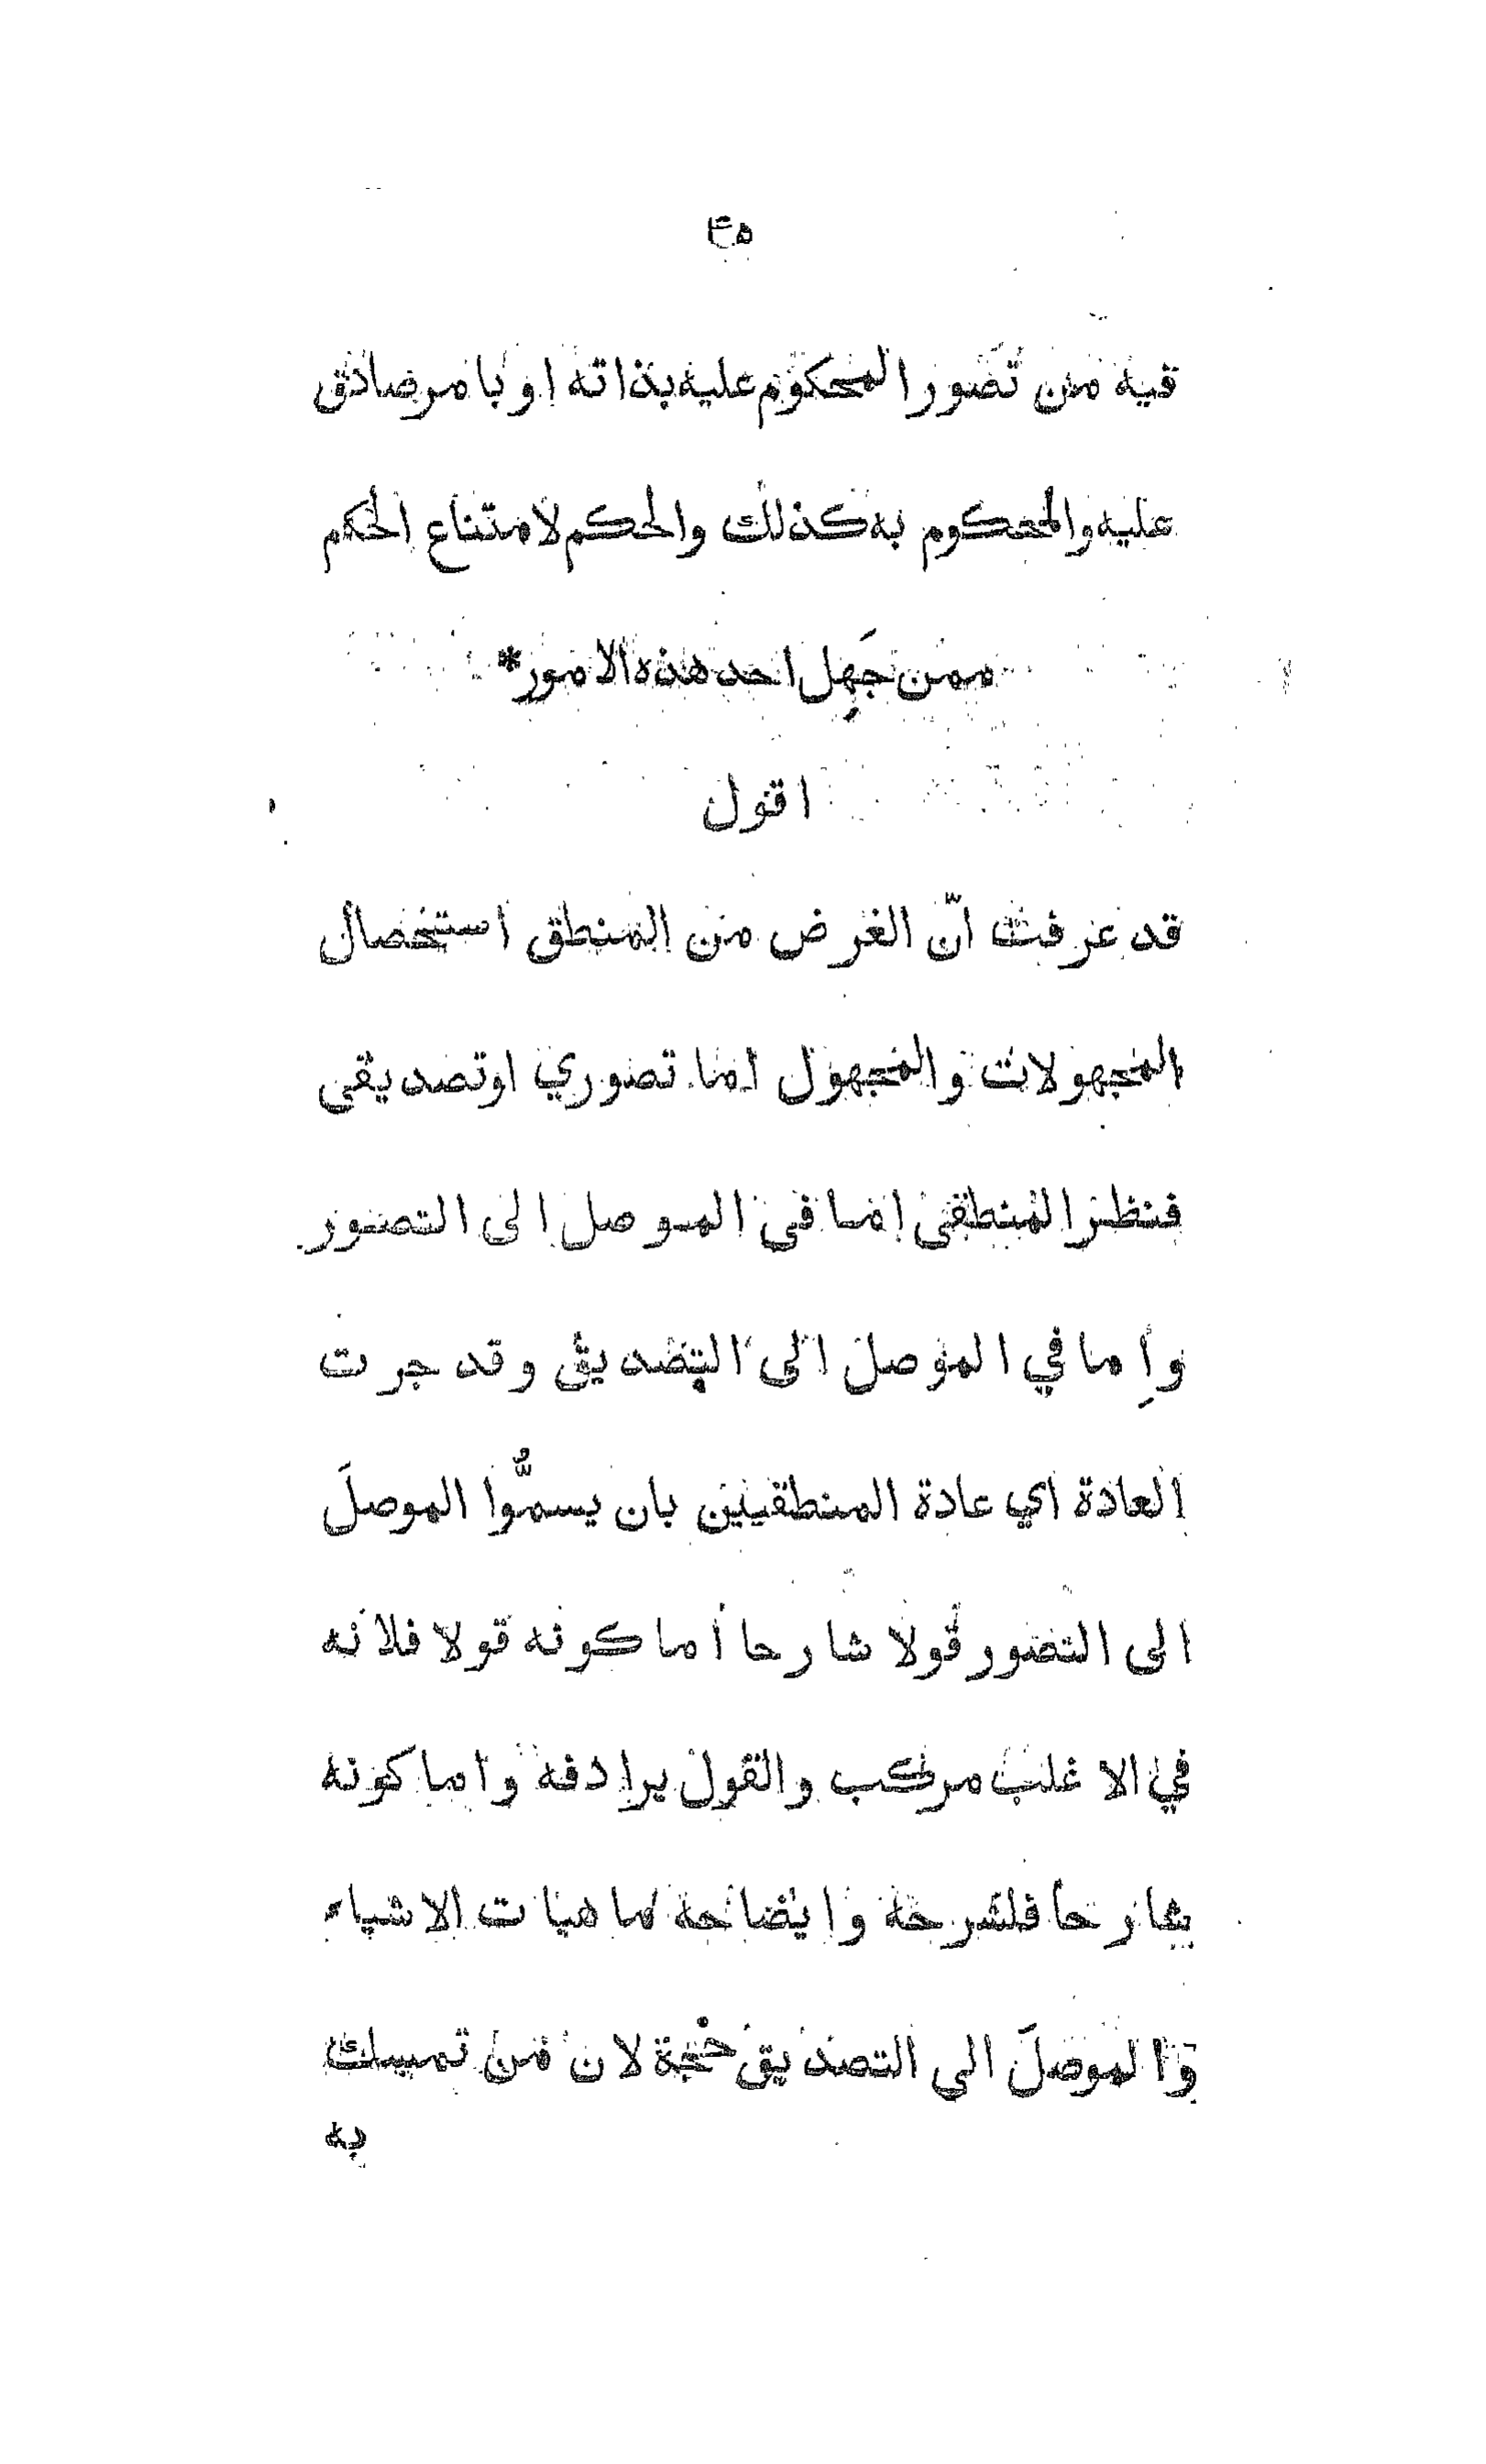 ۴۵
فيه من تصور المحكوم عليه بذاته او بامر صادق
عليه والمحكوم به كذلك والحكم لامتناع الحكم
ممن جَهِل احد هذه الامور*
اقول
قد عرفت انّ الغرض من المنطق استحصال
المجهولات والمجهول اما تصوري او تصديقى
فنظر المنطقى اما فى الموصل الى التصور
واِما في الموصل الى التصديق وقد جرت
العادة اي عادة المنطقيين بان يسمُّوا الموصلَ
الى التصور قولا شارحا أما كونه قولا فلانه
في الاغلب مركب والقول يرادفه واما كونه
شارحا فلشرحه وايضاحه لماهيات الاشياء
والموصلَ الى التصديق حجة لان من تمسك
به